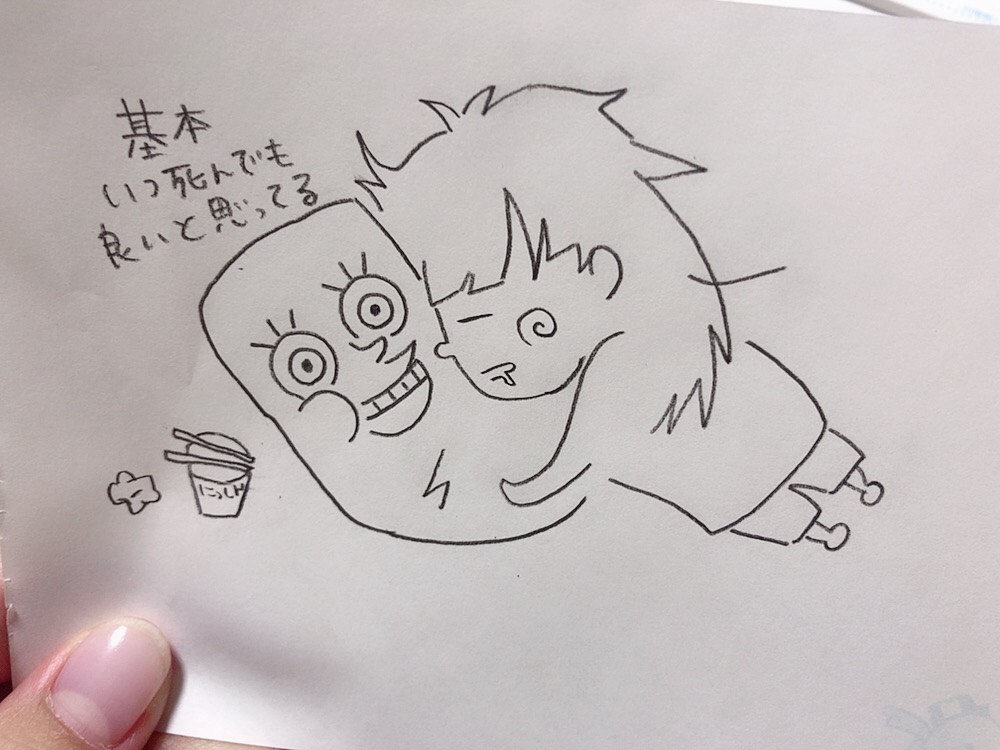 基本
いつ死んでも
良いと思ってる
にっしん